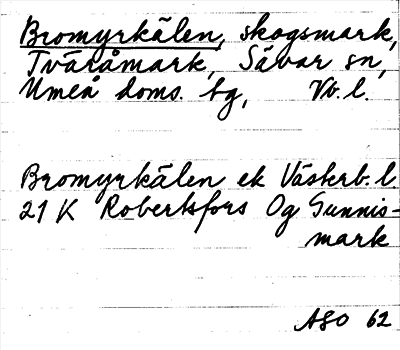 Bromyrkälen, skogsmark,
Tväråmark, Sävar sn,
Umeå doms. tg, Vb. l.
Bromyrkälen ek Västerb. l.
21 K Robertsfors Og Gunnis-
mark
ASO 62